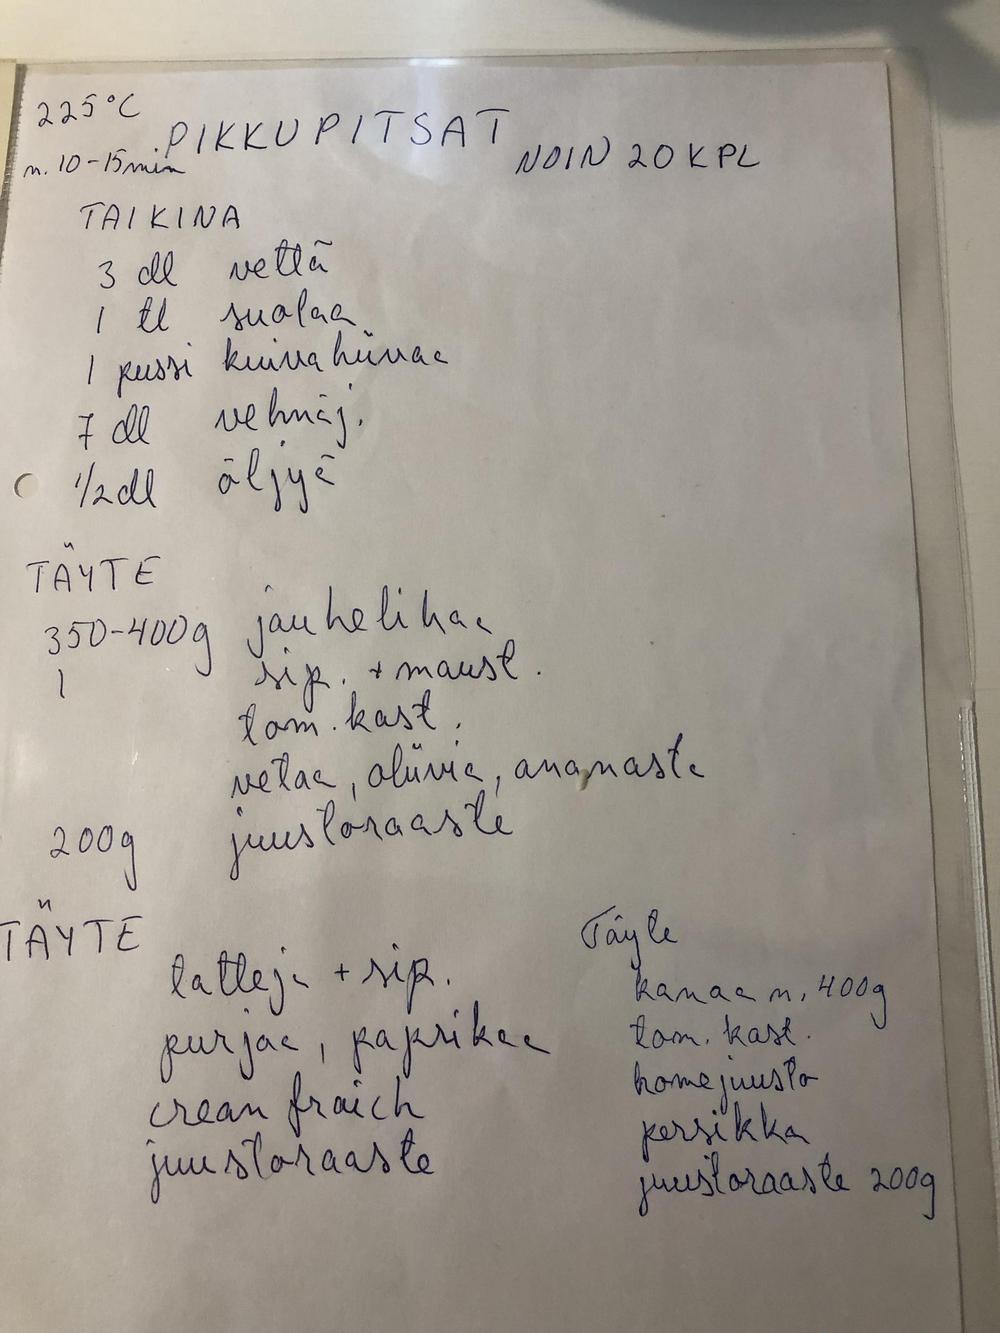 225°C
PIKKUPITSAT
n. 10-15min
NOIN 20KPL
TAIKINA
3 dl vettä
1 tl suolaa
1 pussi kuivahiivaa
7 dl vehnäj.
1/2 dl öljyä
TÄYTE
350-400g jauhelihaa
1 sip. + maust.
tom. kast.
vetaa, oliivia, ananasta
200g juustoraaste
TÄYTE
tatteja + sip.
purjaa, paprikaa
crean fraich
juustoraaste
Täyte
kanaa n. 400g
tom. kast.
homejuusto
persikka
juustoraaste 200g